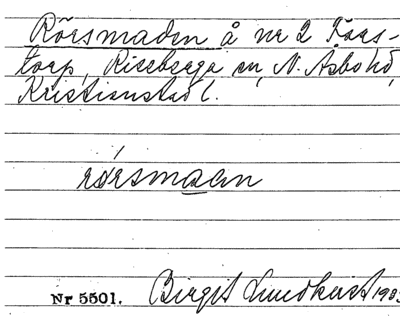 Rörsmaden å nr 2 Kors-
torp, Riseberga sn, N. Åsbo hd,
Kristianstad l.
rørsmaen
Nr 5501. Birgit Lundkvist 193